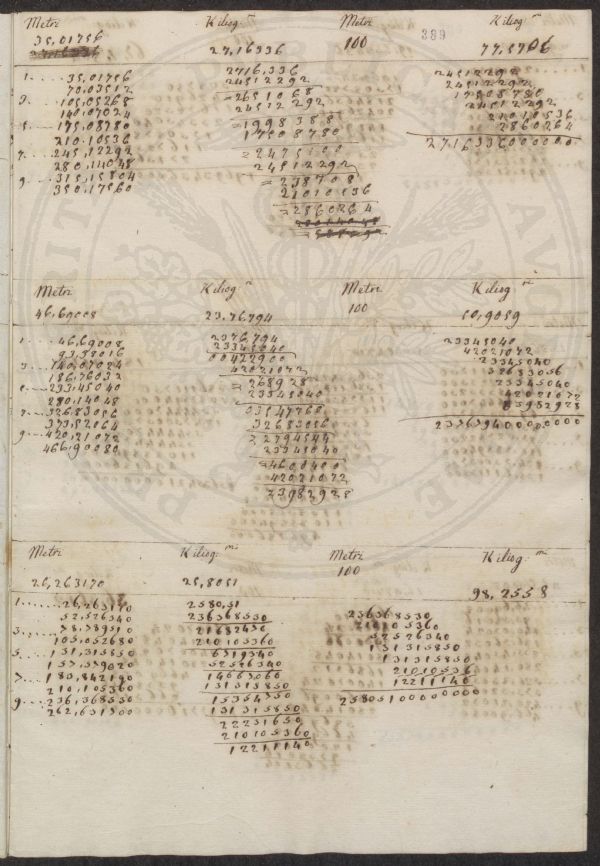 Metri Kiliog.mi Metri Kiliog.mi
389
35,01756 27,16336 100 77,5706
1.... 35,01756
70,03512
3.... 105,05268
140,07024
5.... 175,08780
210,10536
7.... 245,12292
280,14048
9.... 315,15804
350,17560
2716,336
24512292
=2651068
24512292
=1998388
17508780
=2475100
24512292
=238708
21010536
=2860264
24512292
24512292
17508780
24512292
21010536
2860264
2716336000000
Metri Kiliog.mi Metri Kiliog.mi
46,69008 23,76794 100
1.... 46,69008
93,38016
3.... 140,07024
186,76032
5.... 233,45040
280,14048
7.... 326,83056
373,52064
9.... 420,21072
466,90080
2376794
23345040
00422900
42021072
=268928
23345040
03547760
32683056
=2794544
23345040
=4600400
42021072
23982928
23345040
42021072
23345040
32683056
23345040
42021072
Metri Kiliog.mi Metri Kiliog.mi
26,263170 25,8051 100 98,2558
1.... 26,263170
52,526340
3.... 78,789510
105,052680
5.... 131,315850
157,579020
7.... 183,842190
210,105360
9.... 236,368530
262,631700
2580,51
236368530
21682470
210105360
6719340
52526340
14667060
131315850
15354750
131315850
22231650
210105360
12211140
236368530
210105360
52526340
131315850
131315850
210105360
12211140